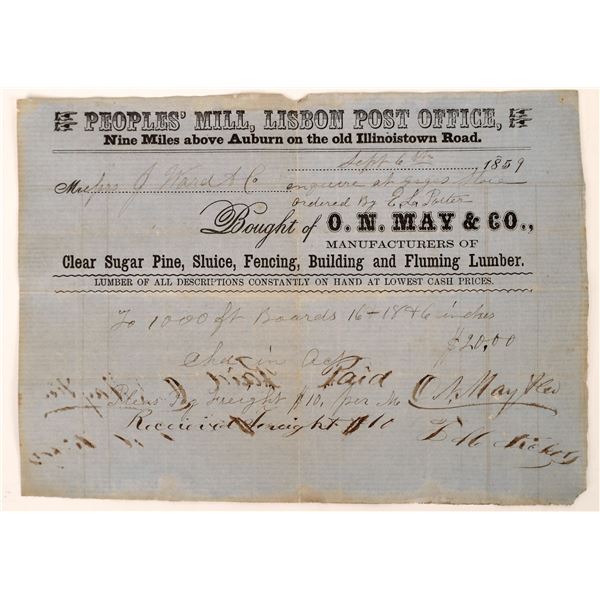 PEOPLES' MILL, LISBON POST OFFICE,
Nine Miles above Auburn on the old Illinoistown Road.
Sept 6th 1859
Messrs J Ward & Co enquire at store
ordered By E. L. Porter
Bought of O. N. MAY & CO.,
MANUFACTURERS OF
Clear Sugar Pine, Sluice, Fencing, Building and Fluming Lumber.
LUMBER OF ALL DESCRIPTIONS CONSTANTLY ON HAND AT LOWEST CASH PRICES.
To 1000 ft Boards 16 + 18 inches
$20,00
Chd in Act
Paid
Pleas Pay Freight $10, per M O N. May & Co
Received freight $10